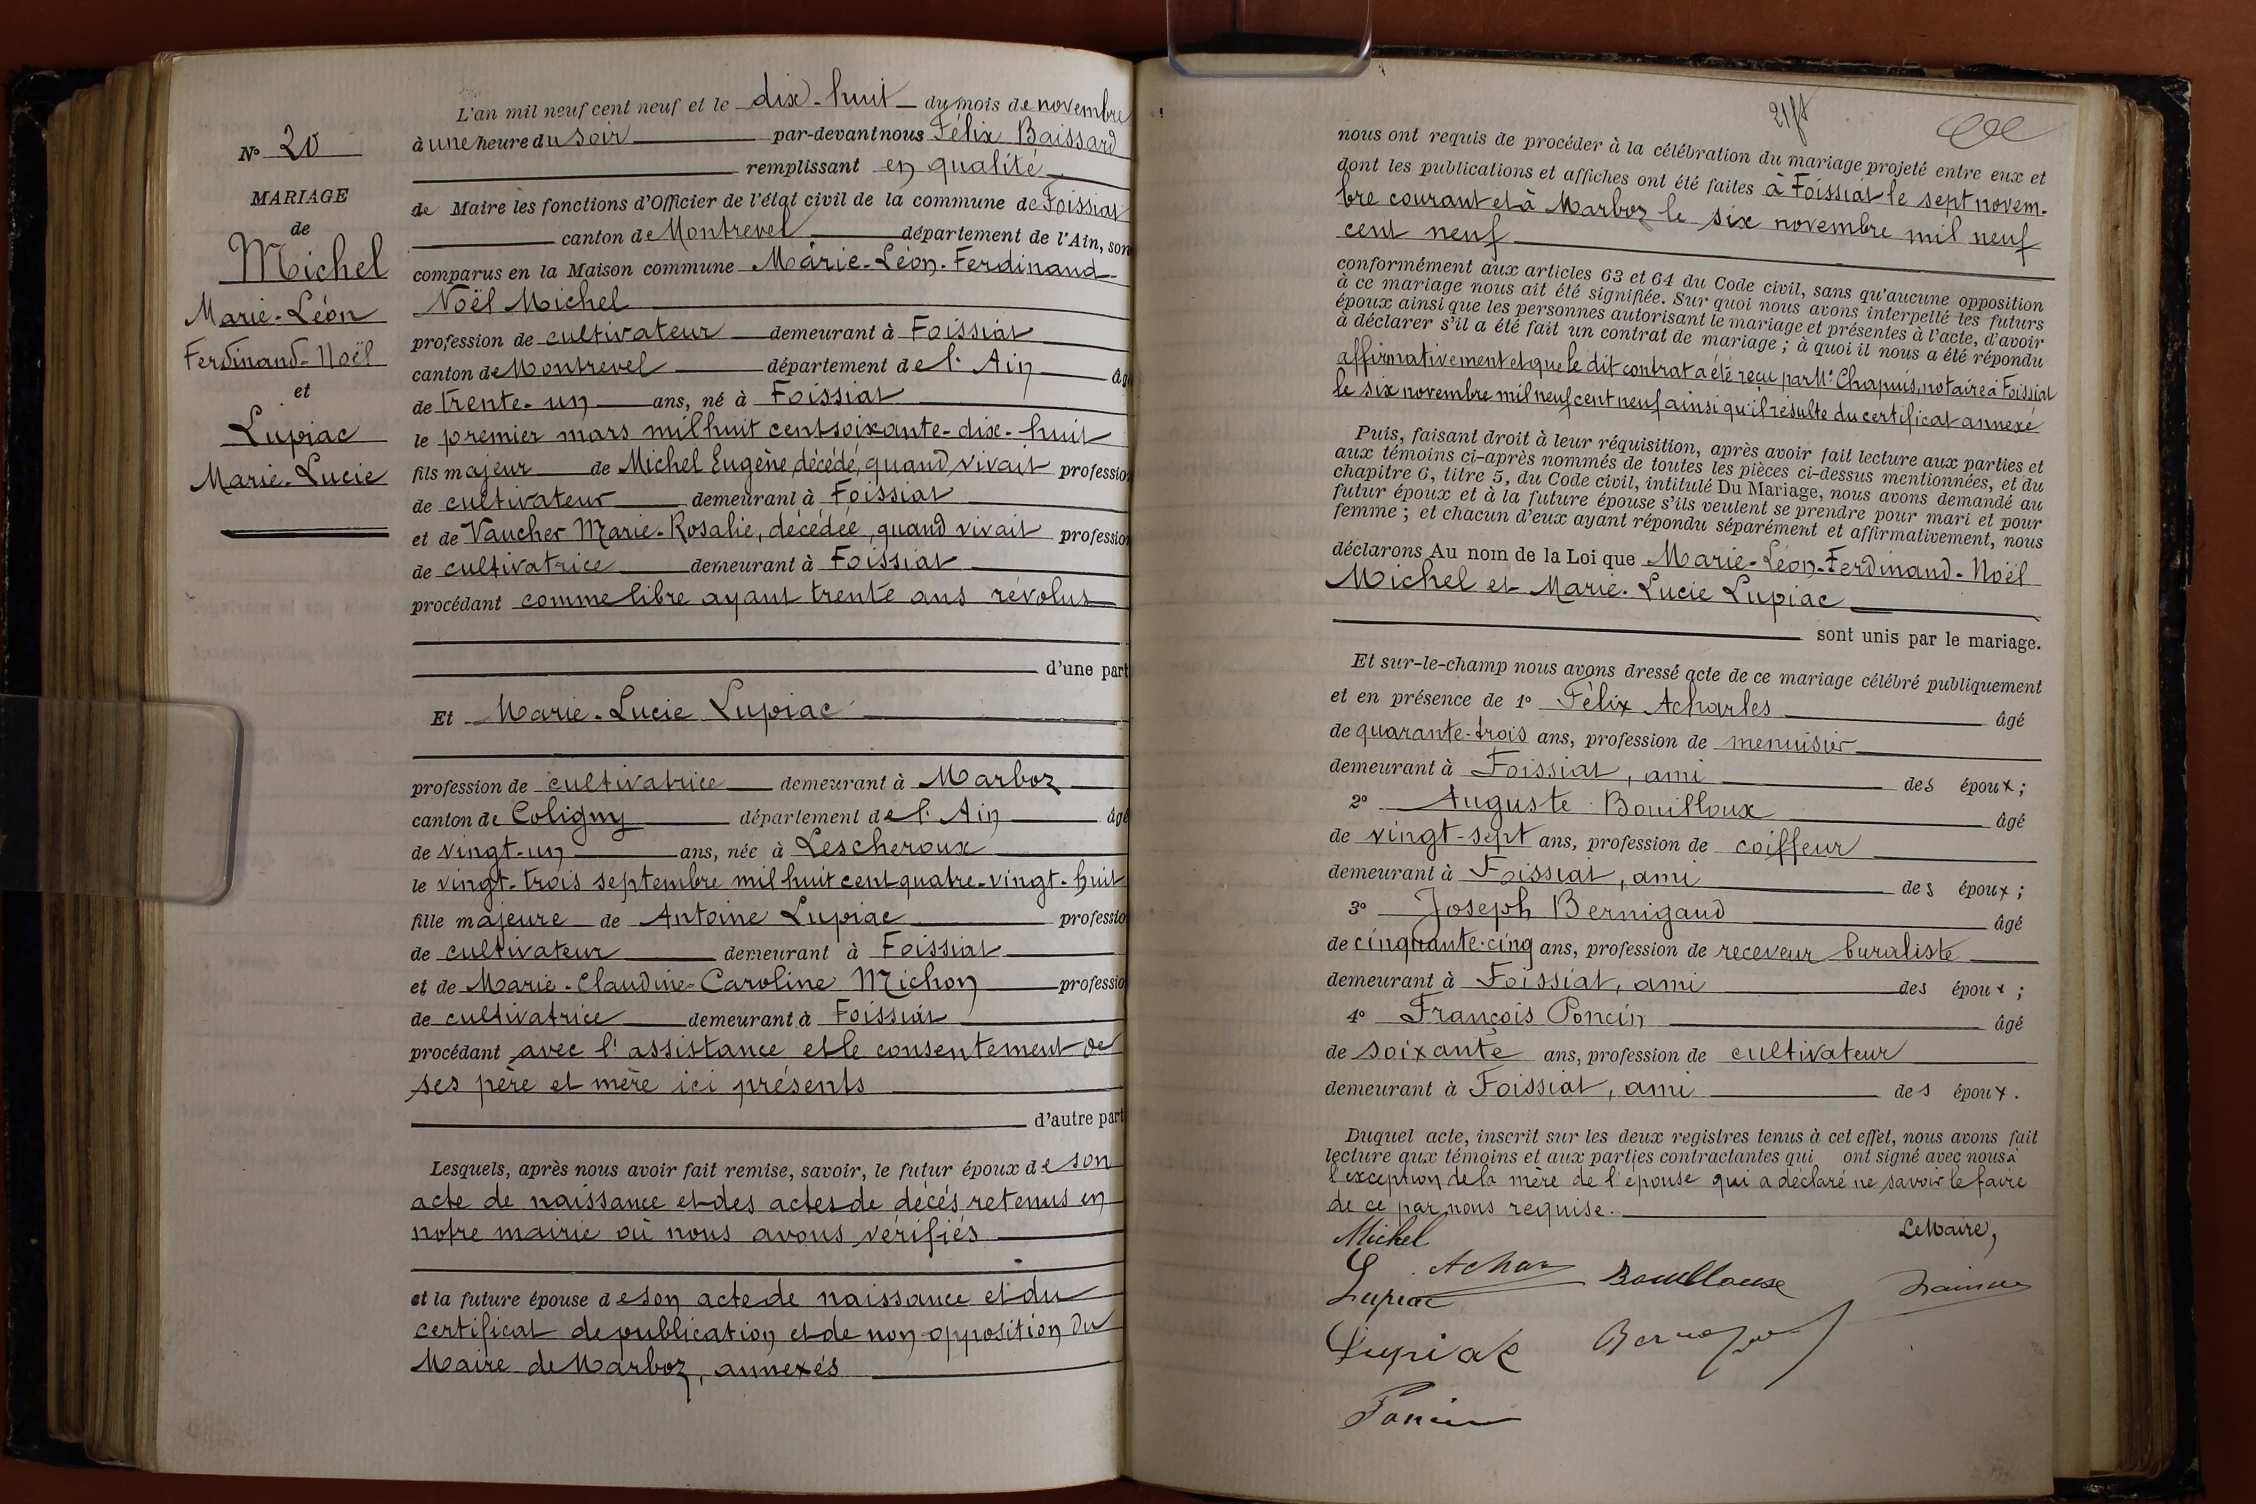 N° 20
MARIAGE
de
Michel
Marie-Léon
Ferdinand-Noël
et
Lupiac
Marie-Lucie
L'an mil neuf cent neuf et le dix-huit du mois de novembre
à une heure du soir par-devant nous Félix Baissard
remplissant en qualité
de Maire les fonctions d'Officier de l'état civil de la commune de Foissiat
canton de Montrevel département de l'Ain, son
comparus en la Maison commune Marie-Léon-Ferdinand-
Noël Michel
profession de cultivateur demeurant à Foissiat
canton de Montrevel département de l'Ain âgé
de trente-un ans, né à Foissiat
le premier mars mil huit cent soixante-dix-huit
fils majeur de Michel Eugène, décédé, quand vivait profession
de cultivateur demeurant à Foissiat
et de Vaucher Marie-Rosalie, décédée, quand vivait profession
de cultivatrice demeurant à Foissiat
procédant comme libre ayant trente ans révolus
d'une part
Et Marie-Lucie Lupiac
profession de cultivatrice demeurant à Marboz
canton de Coligny département de l'Ain âgé
de vingt-un ans, née à Lescheroux
le vingt-trois septembre mil huit cent quatre-vingt-huit
fille majeure de Antoine Lupiac professio
de cultivateur demeurant à Foissiat
et de Marie-Claudine-Caroline Michon professio
de cultivatrice demeurant à Foissiat
procédant avec l'assistance et le consentement de
ses père et mère ici présents
d'autre part
Lesquels, après nous avoir fait remise, savoir, le futur époux de son
acte de naissance et des actes de décès retenus en
notre mairie où nous avons vérifiés
et la future épouse de son acte de naissance et du
certificat de publication et de non-opposition du
Maire de Marboz, annexés
nous ont requis de procéder à la célébration du mariage projeté entre eux et
dont les publications et affiches ont été faites à Foissiat le sept novem-
bre courant et à Marboz le six novembre mil neuf
cent neuf
conformément aux articles 63 et 64 du Code civil, sans qu'aucune opposition
à ce mariage nous ait été signifiée. Sur quoi nous avons interpellé les futurs
époux ainsi que les personnes autorisant le mariage et présentes à l'acte, d'avoir
à déclarer s'il a été fait un contrat de mariage ; à quoi il nous a été répondu
affirmativement et que le dit contrat a été reçu par Me Chapuis, notaire à Foissiat
le six novembre mil neuf cent neuf ainsi qu'il résulte du certificat annexé
Puis, faisant droit à leur réquisition, après avoir fait lecture aux parties et
aux témoins ci-après nommés de toutes les pièces ci-dessus mentionnées, et du
chapitre 6, titre 5, du Code civil, intitulé Du Mariage, nous avons demandé au
futur époux et à la future épouse s'ils veulent se prendre pour mari et pour
femme ; et chacun d'eux ayant répondu séparément et affirmativement, nous
déclarons Au nom de la Loi que Marie-Léon-Ferdinand-Noël
Michel et Marie-Lucie Lupiac
sont unis par le mariage.
Et sur-le-champ nous avons dressé acte de ce mariage célébré publiquement
et en présence de 1° Félix Acharles âgé
de quarante-trois ans, profession de menuisier
demeurant à Foissiat, ami des époux ;
2° Auguste Bouilloux âgé
de vingt-sept ans, profession de coiffeur
demeurant à Foissiat, ami des époux ;
3° Joseph Bernigaud âgé
de cinquante-cinq ans, profession de receveur buraliste
demeurant à Foissiat, ami des époux ;
4° François Poncin âgé
de soixante ans, profession de cultivateur
demeurant à Foissiat, ami des époux.
Duquel acte, inscrit sur les deux registres tenus à cet effet, nous avons fait
lecture aux témoins et aux parties contractantes qui ont signé avec nous à
l'exception de la mère de l'épouse qui a déclaré ne savoir le faire
de ce par nous requise.
Michel Le Maire,
Achar Bouilloux
Lupiac
Lupiac
Poncin